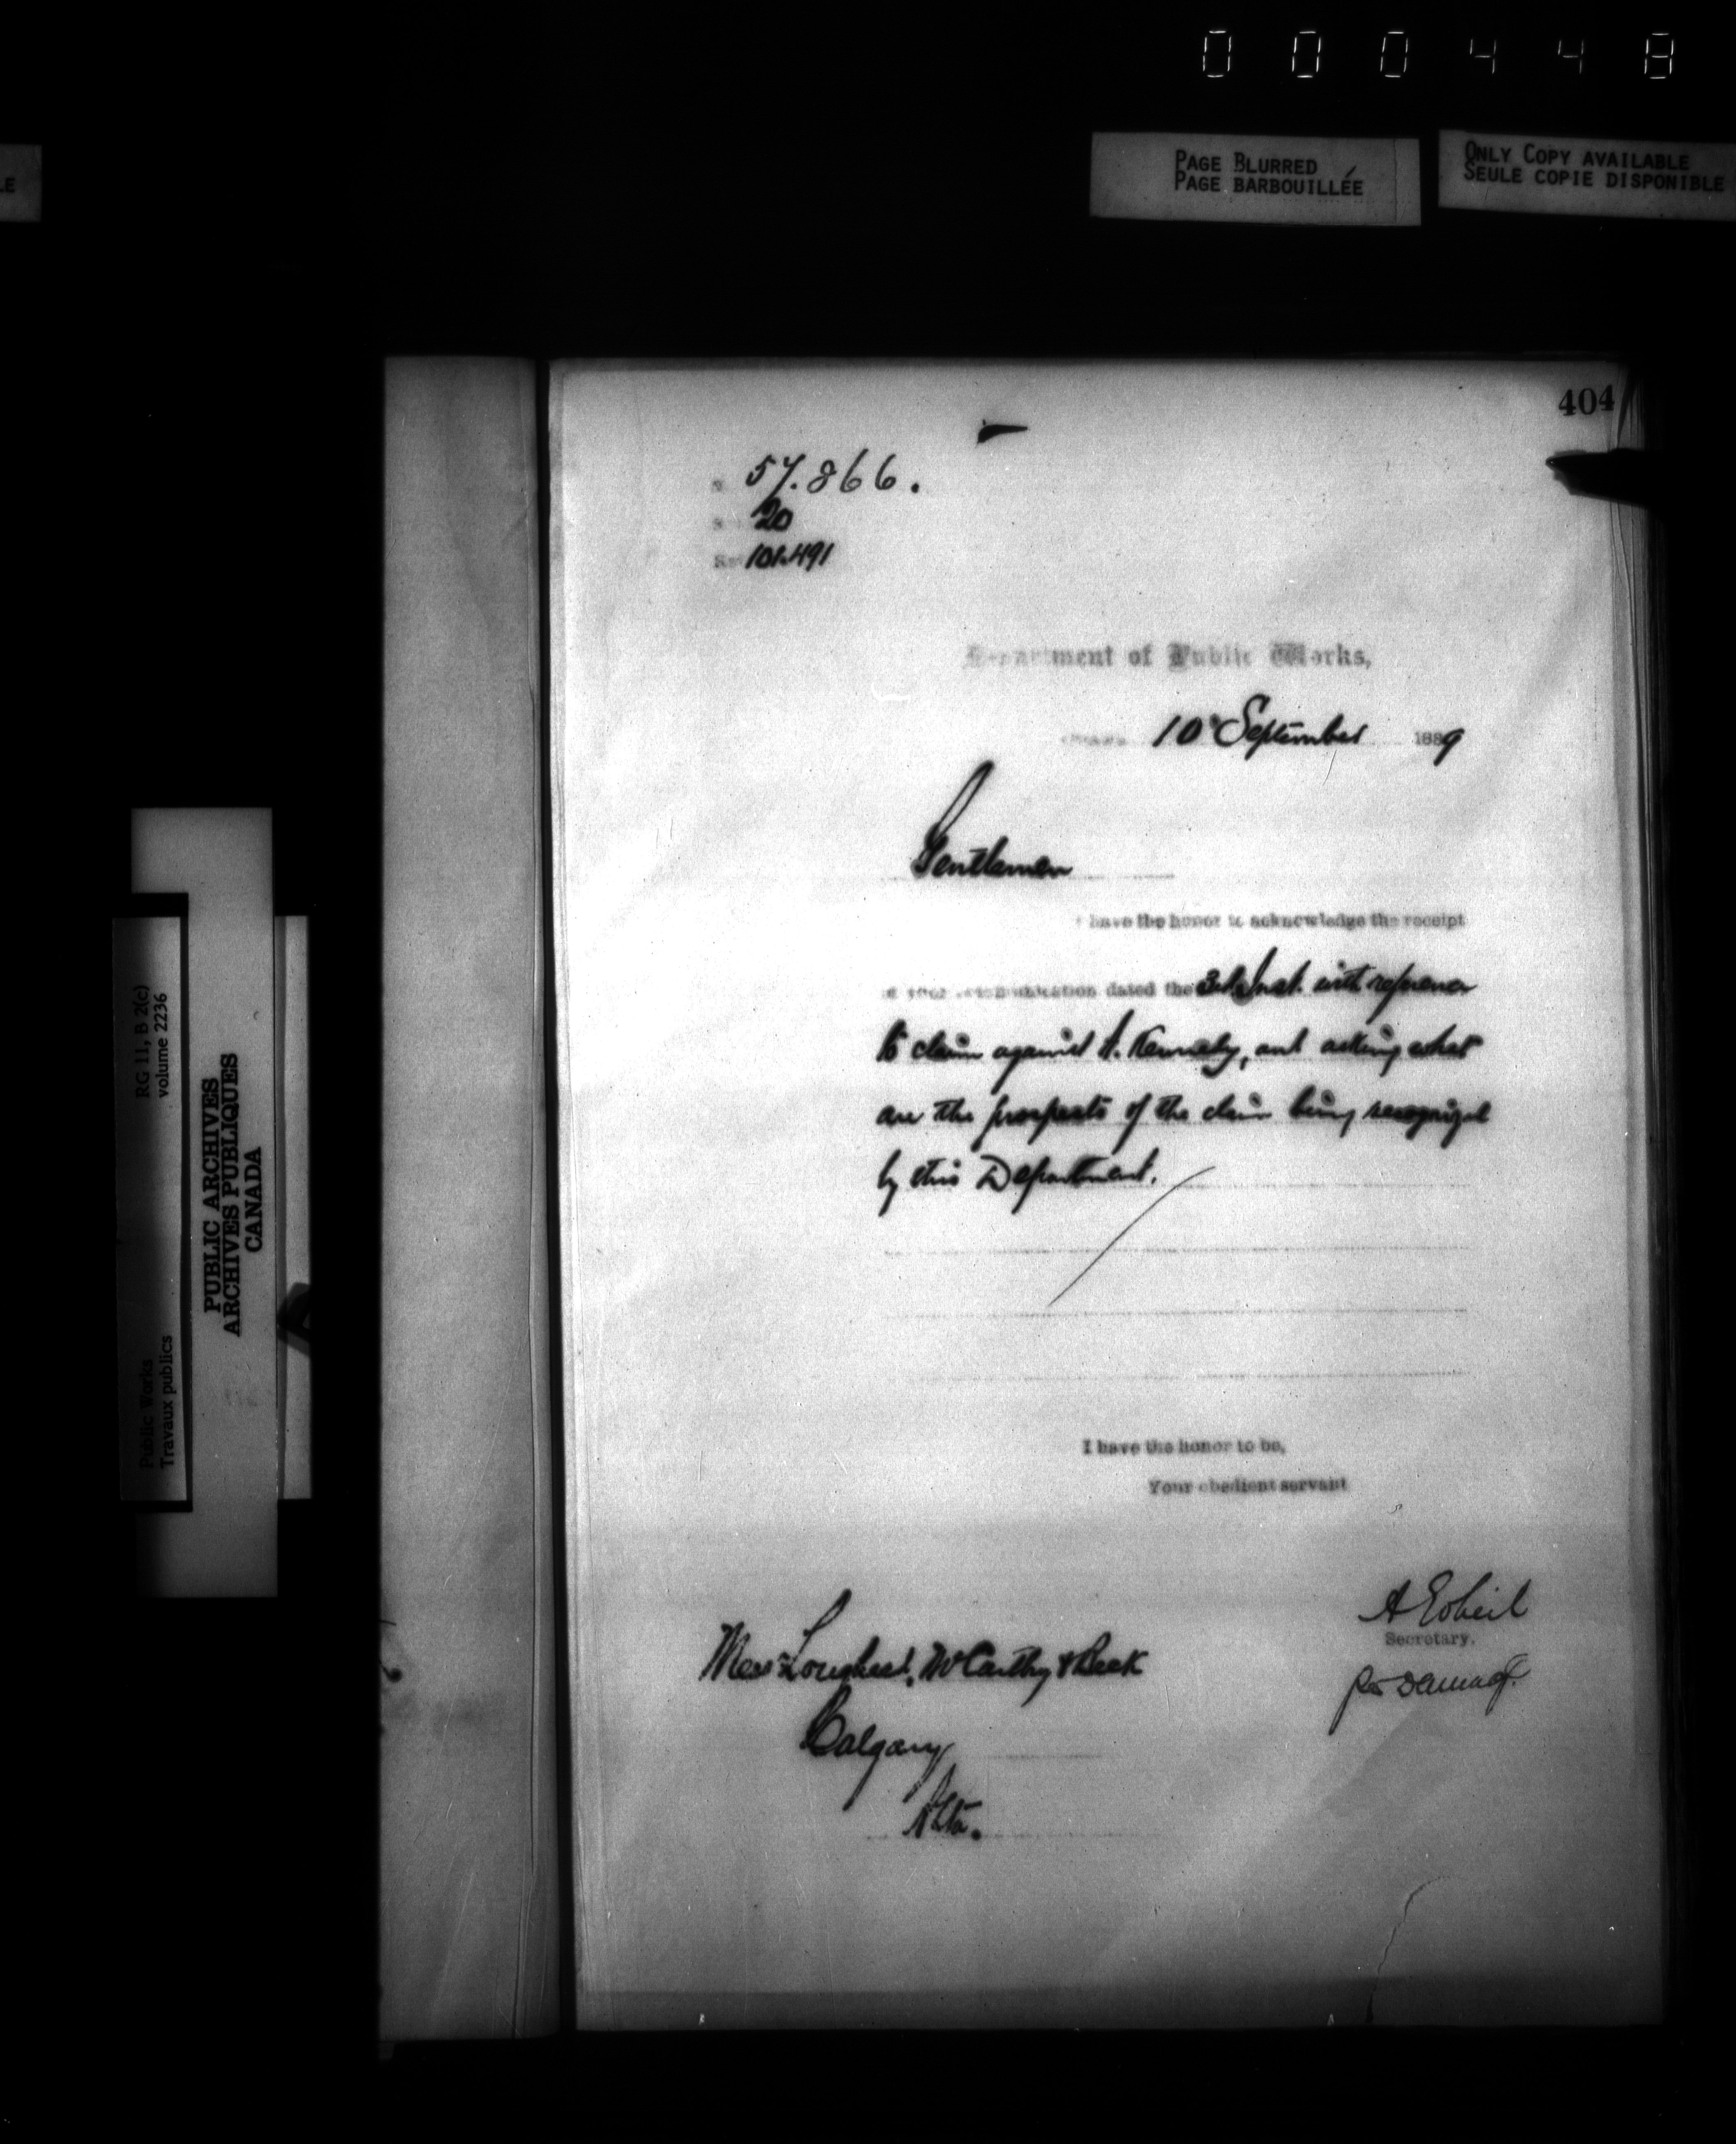 000448
PAGE BLURRED
PAGE BARBOUILLÉE
ONLY COPY AVAILABLE
SEULE COPIE DISPONIBLE
LE
404
57.866.
20
101.491
Department of Public Works,
10 September 1889
Gentlemen
have the honor to acknowledge the receipt
of your communication dated the 3rd Inst. with reference
to claim against A. Kennedy, and asking what
are the prospects of the claim being recognized
by this Department.
I have the honor to be,
Your obedient servant
A Gobeil
Secretary.
Messrs Lougheed, McCarthy & Beck
Calgary
Alta.
RG 11, B 2(c)
volume 2236
Public Works
Travaux publics
PUBLIC ARCHIVES
ARCHIVES PUBLIQUES
CANADA